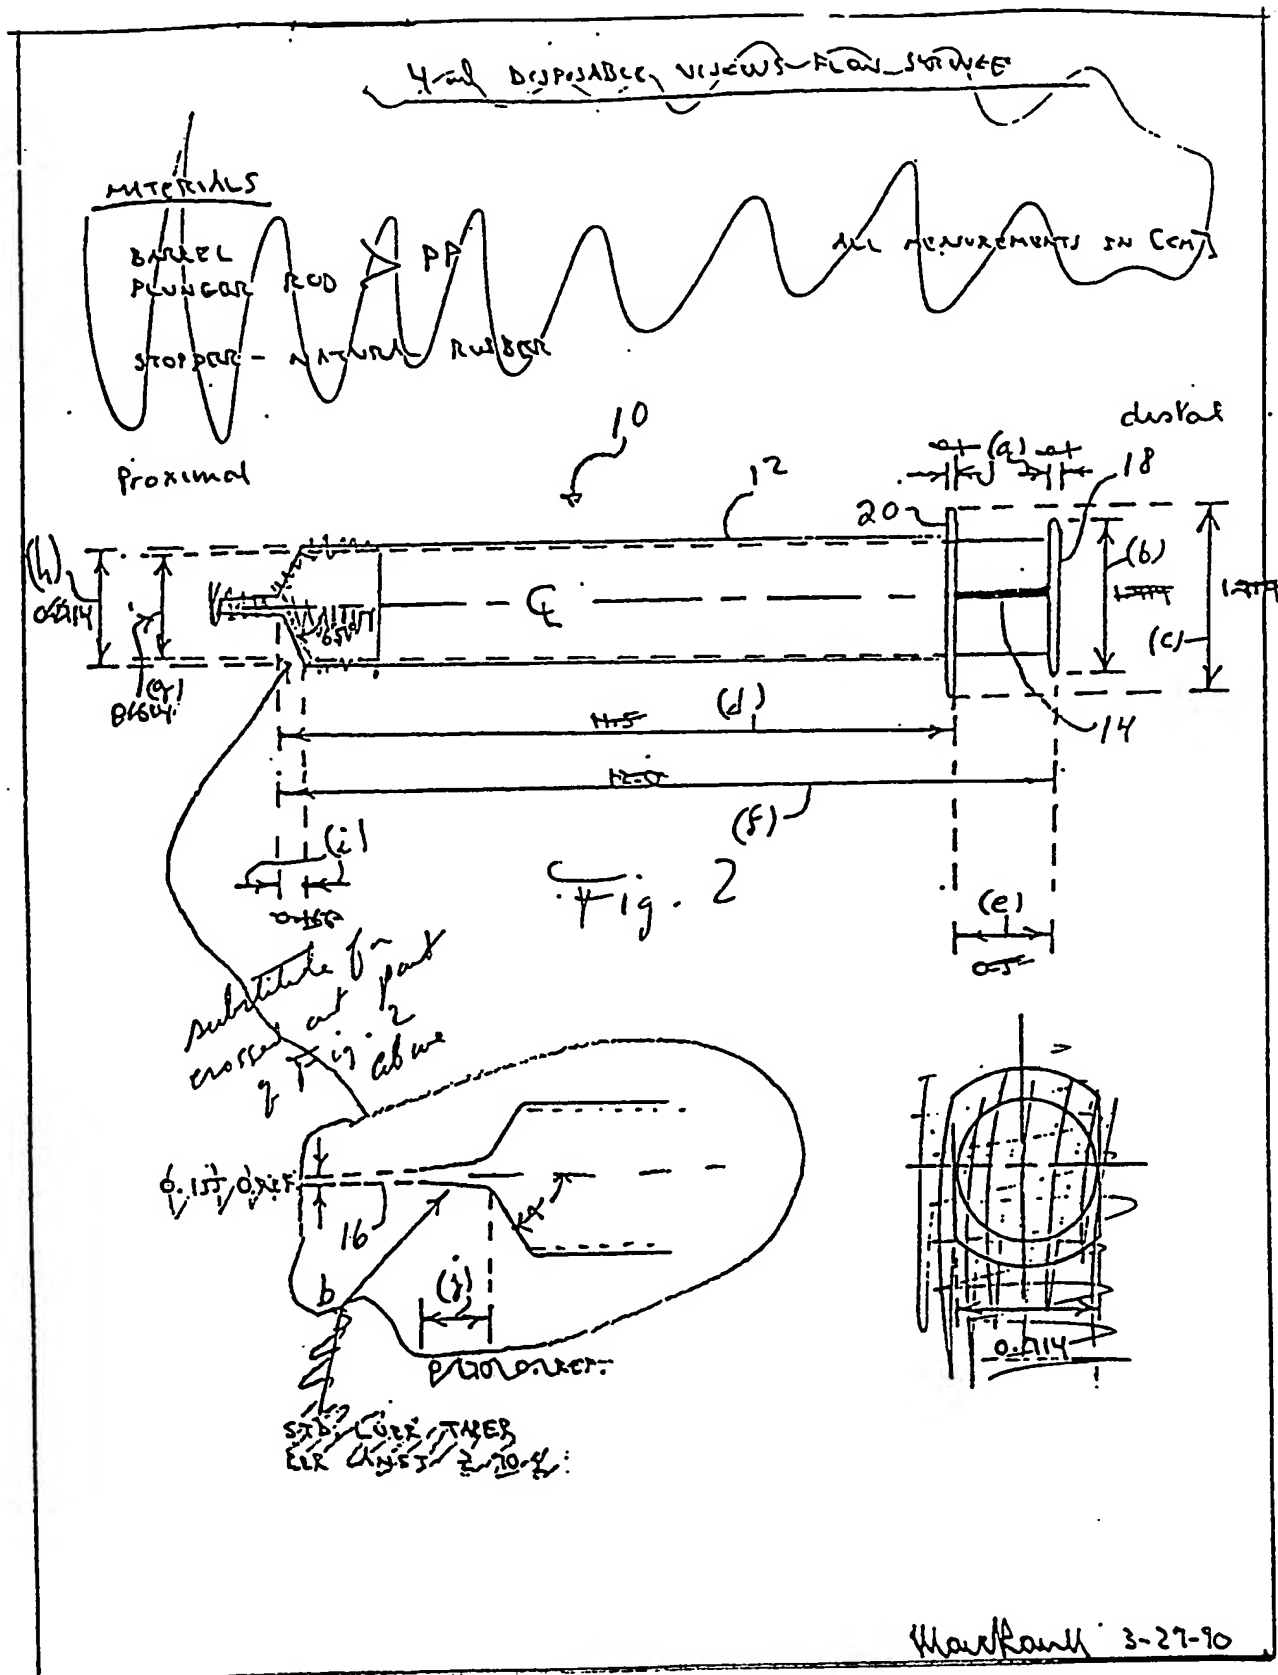 4-ml DISPOSABLE VISCOUS-FLOW SYRINGE
MATERIALS
BARREL
PLUNGER ROD > PP
STOPPER - NATURAL RUBBER
ALL MEASUREMENTS IN [CM]
proximal
distal
10
12
(a)
18
20
(h)
(b)
(c)
0.714
℄
65°
(g)
14
11.5
(d)
12.0
(f)
(i)
Fig. 2
(e)
0.5
substitute for
crossed out part
of Fig. 2
above
0.155 0 REF.
16
α
b
(j)
0.714
STD. LUER TAPER
PER ANSI Z 70.1
3-27-90